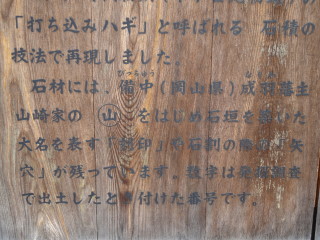 「打ち込みハギ」と呼ばれる 石積の
技法で再現しました。
石材には、備中(岡山県)成羽藩主
山崎家の 山 をはじめ石垣を築いた
大名を表す「刻印」や石割の際の「矢
穴」が残っています。数字は発掘調査
で出土したとき付けた番号です。